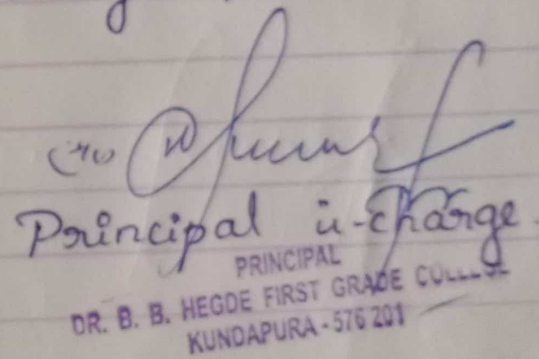 Principal in-charge.
PRINCIPAL
DR. B. B. HEGDE FIRST GRADE COLLEGE
KUNDAPURA - 576 201